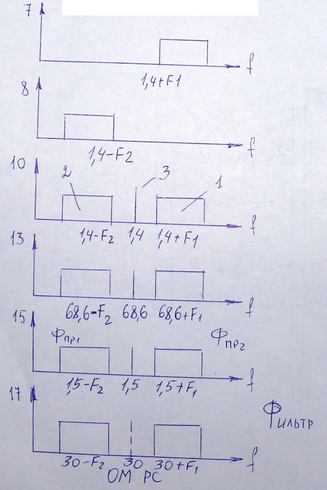 7
f
1,4+F1
8
f
1,4-F2
10
2
3
1
f
1,4-F2 1,4 1,4+F1
13
f
68,6-F2 68,6 68,6+F1
15
Фпр1
Фпр2
f
1,5-F2 1,5 1,5+F1
17
Фильтр
f
30-F2 30 30+F1
ОМ РС